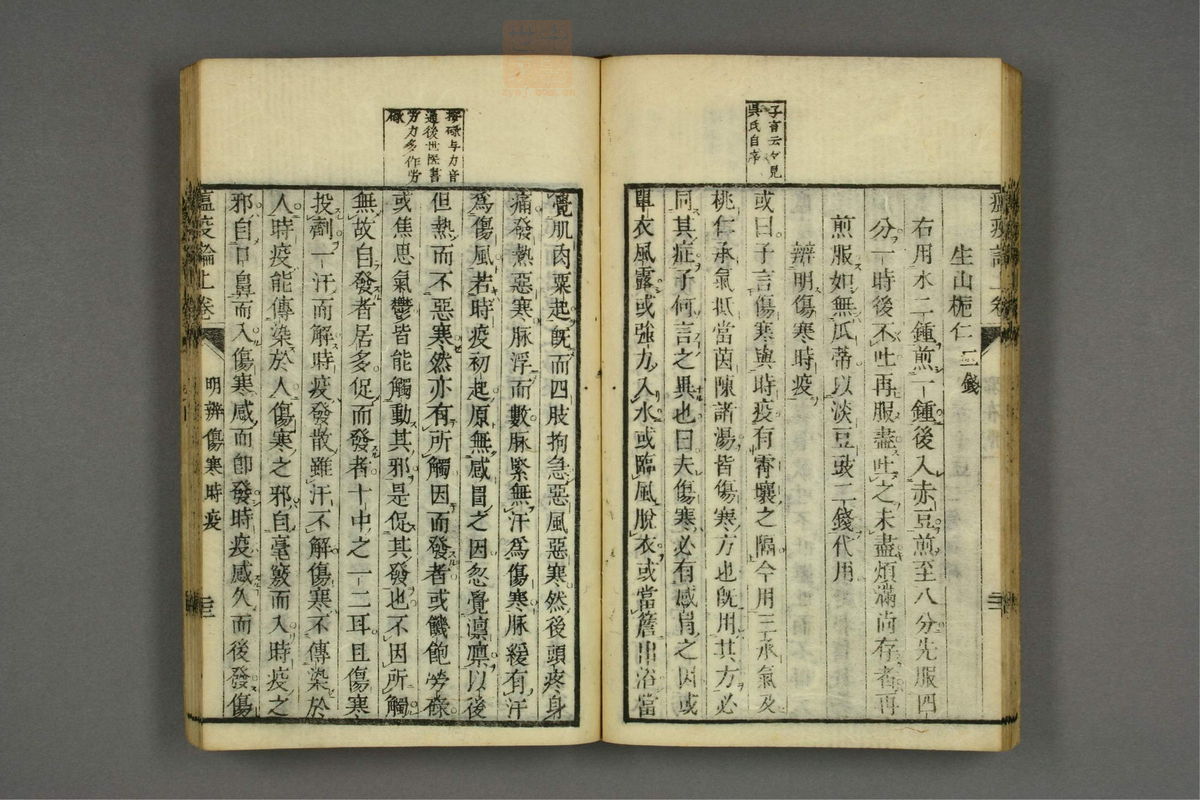 子言云々見
吳氏自序
瘟疫論上卷
生山梔仁二錢
右用水二鍾煎一鍾後入赤豆煎至八分先服四
分一時後不吐再服盡吐之未盡煩滿尚存者再
煎服如無瓜蒂以淡豆豉二錢代用
辨明傷寒時疫
或曰子言傷寒與時疫有霄壤之隔今用三承氣及
桃仁承氣抵當茵陳諸湯皆傷寒方也旣用其方必
同其症子何言之異也曰夫傷寒必有感冒之因或
單衣風露或強力入水或臨風脫衣或當簷出浴當
按碌与力音
通後世医書
労力多作労
碌
覺肌肉粟起旣而四肢拘急惡風惡寒然後頭疼身
痛發熱惡寒脉浮而數脉緊無汗爲傷寒脉緩有汗
爲傷風若時疫初起原無感冒之因忽覺凛凛以後
但熱而不惡寒然亦有所觸因而發者或饑飽勞碌
或焦思氣鬱皆能觸動其邪是促其發也不因所觸
無故自發者居多促而發者十中之一二耳且傷寒
投劑一汗而解時疫發散雖汗不解傷寒不傳染於
人時疫能傳染於人傷寒之邪自毫竅而入時疫之
邪自口鼻而入傷寒感而即發時疫感久而後發傷
瘟疫論上卷
明辨傷寒時疫